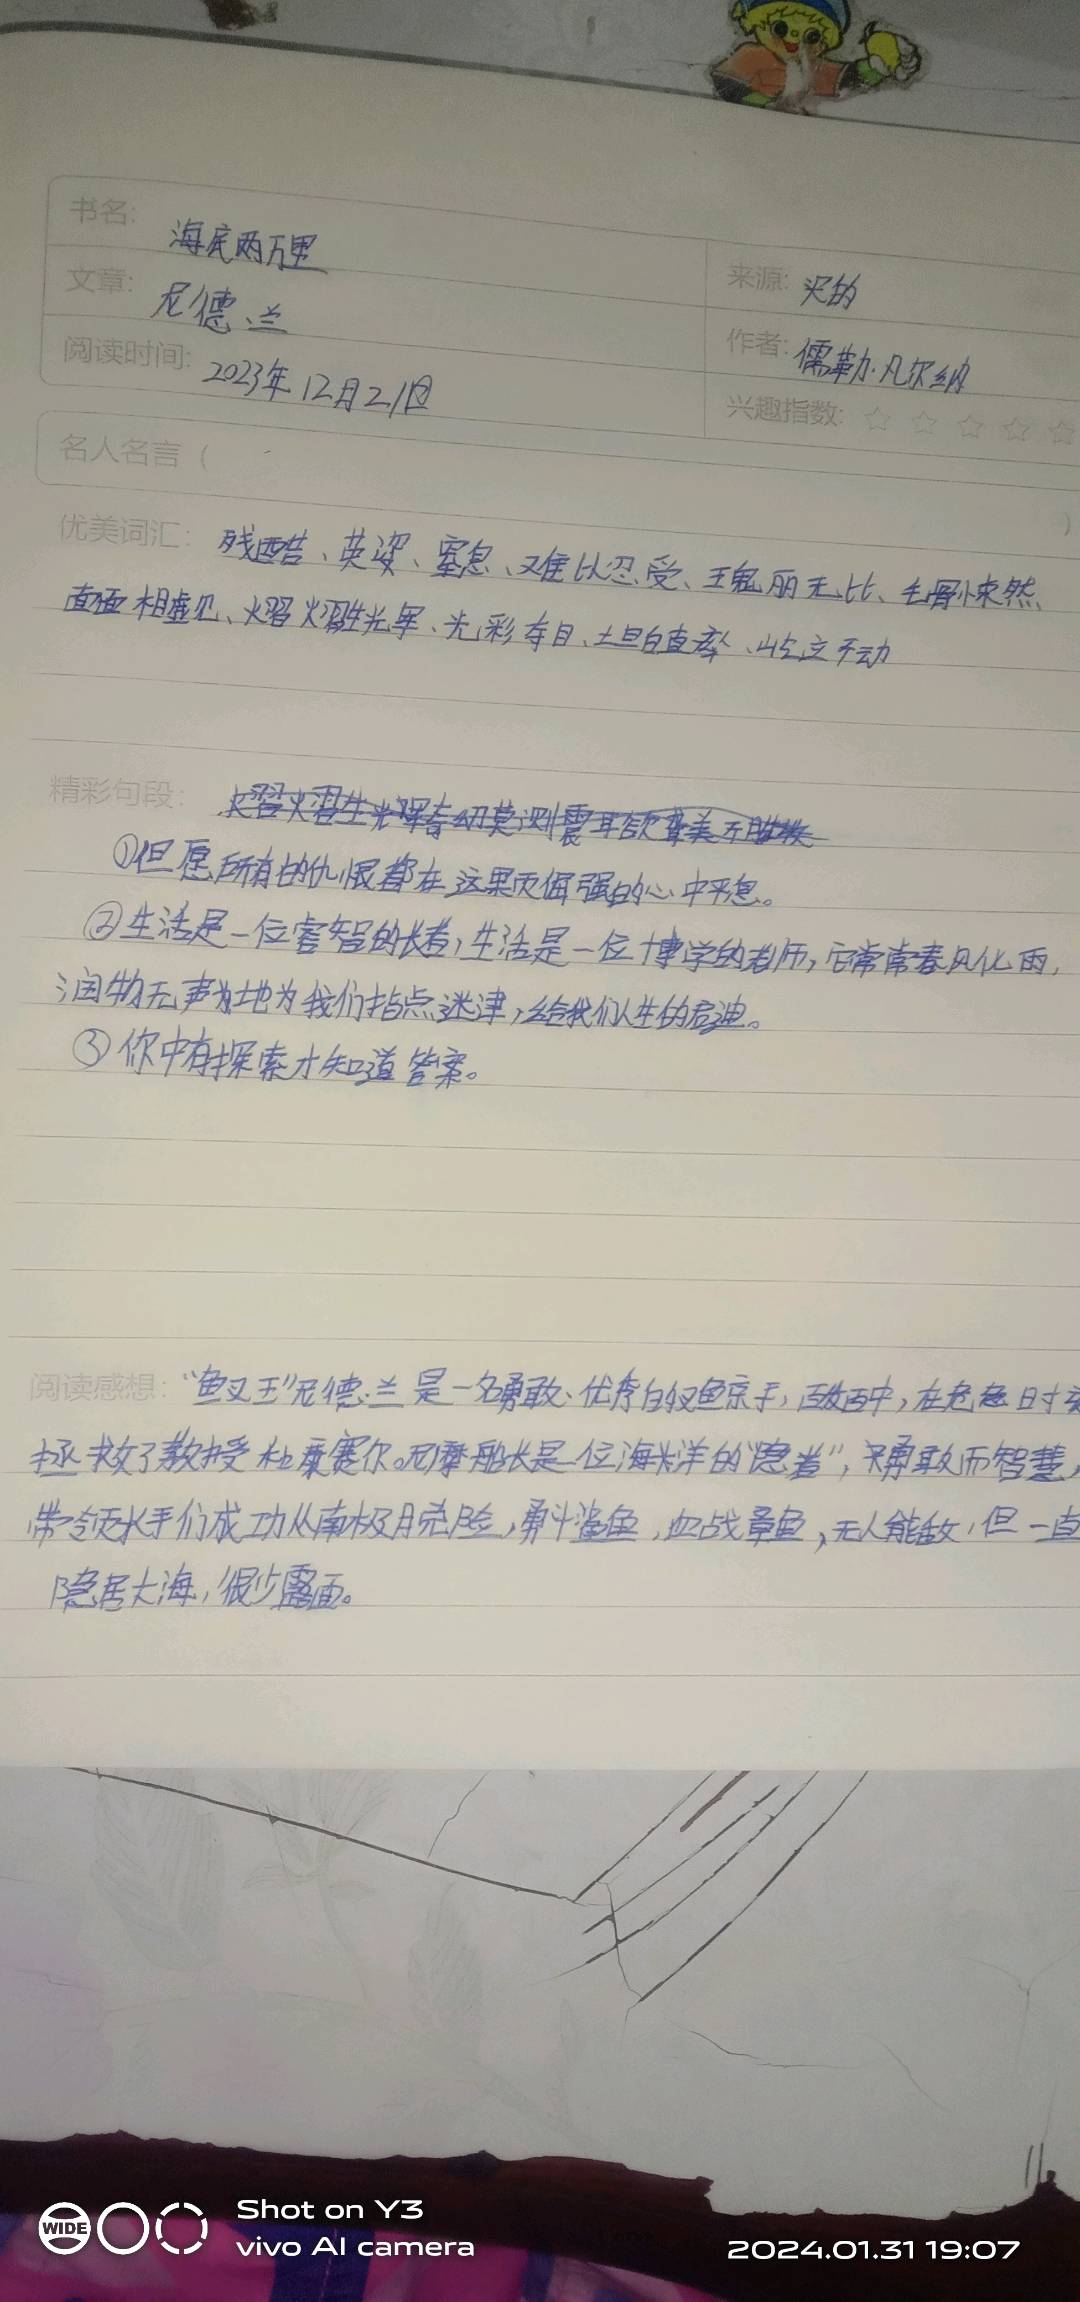 书名: 海底两万里
来源: 买的
文章: 尼德·兰
作者: 儒勒·凡尔纳
阅读时间: 2023年12月21日
兴趣指数: ☆ ☆ ☆ ☆ ☆
名人名言 ( )
优美词汇: 残酷、英姿、窒息、难以忍受、瑰丽无比、毛骨悚然、
直面相觑见、熠熠生光军、光彩夺目、坦白直率、屹立不动
精彩句段: 熠熠生光辉奇幻莫测震耳欲聋美不胜
①但愿所有的仇恨都在这果页倔强的心中平息。
②生活是一位睿智的长者,生活是一位博学的老师,它常常春风化雨,
润物无声地为我们指点迷津,给我们人生的启迪。
③你中有探索才知道答案。
阅读感想: “鱼叉王”尼德·兰是一名勇敢、优秀的捕鲸手,百发百中,在危急时
拯救了教授和康赛尔。尼摩船长是一位海洋的“隐者”,勇敢而智慧,
带领水手们成功从南极脱险,勇斗鲨鱼,血战章鱼,无人能敌,但一直
隐居大海,很少露面。
WIDE
Shot on Y3
vivo AI camera
2024.01.31 19:07